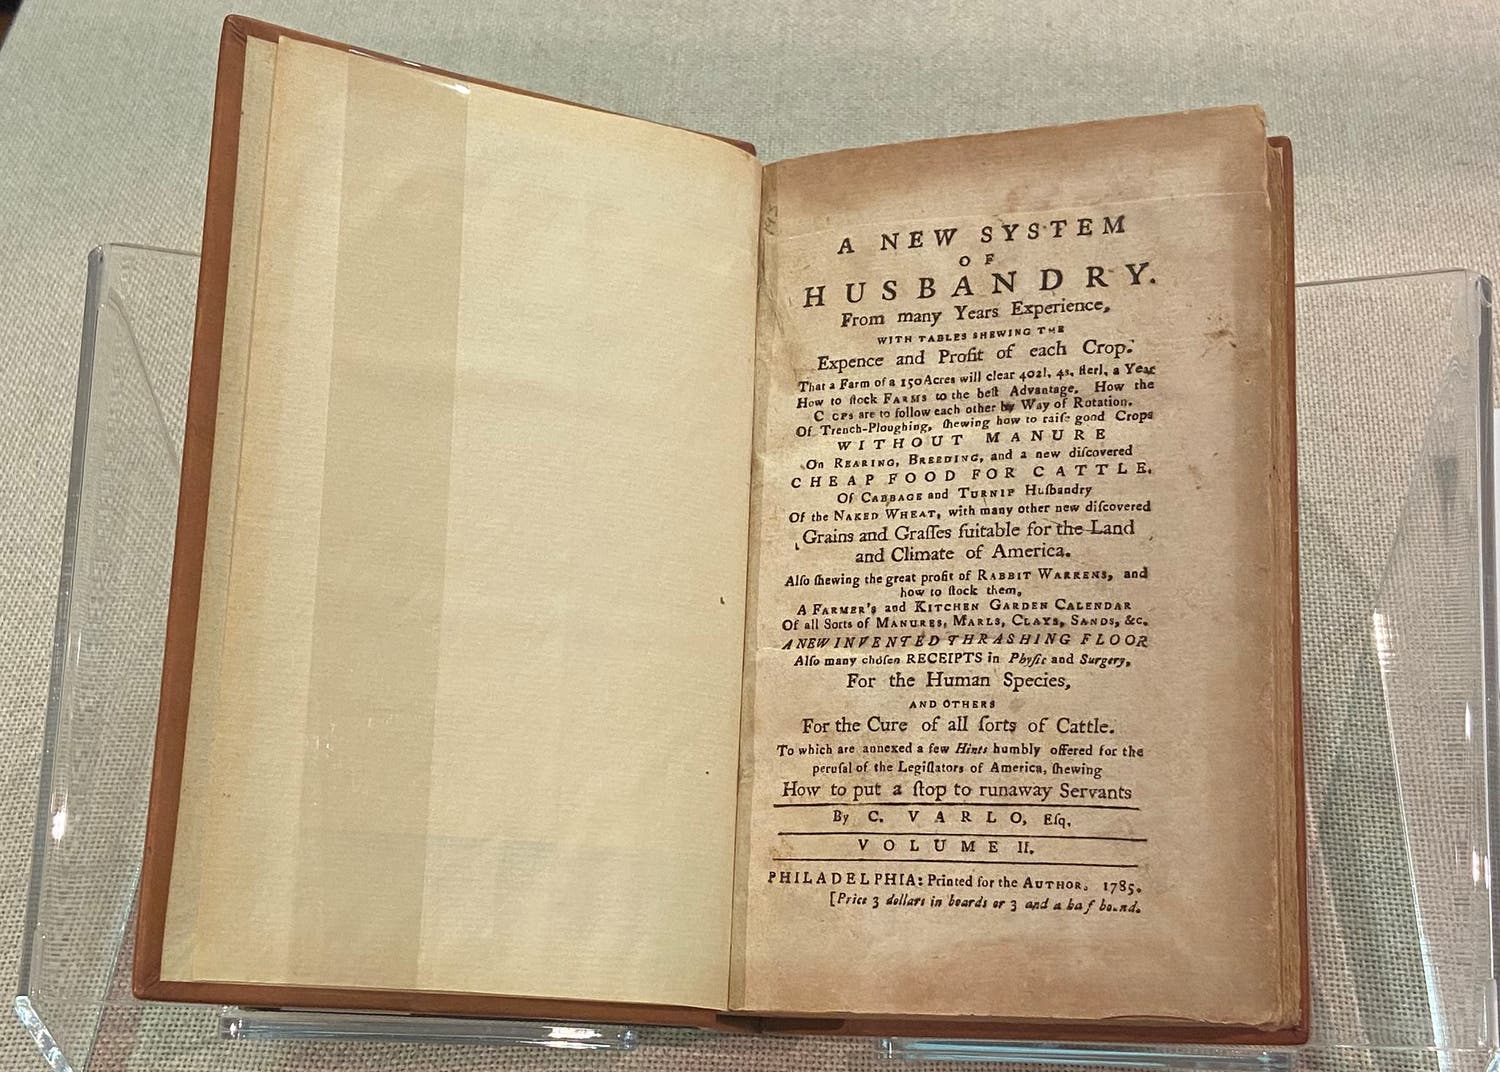 A NEW SYSTEM
OF
HUSBANDRY.
From many Years Experience,
WITH TABLES SHEWING THE
Expence and Profit of each Crop.
That a Farm of a 150 Acres will clear 402l. 4s. sterl. a Year
How to ſtock FARMS to the beſt Advantage. How the
C OPS are to follow each other by Way of Rotation.
Of Trench-Ploughing, ſhewing how to raiſe good Crops
WITHOUT MANURE
On REARING, BREEDING, and a new diſcovered
CHEAP FOOD FOR CATTLE.
Of CABBAGE and TURNIP Huſbandry
Of the NAKED WHEAT, with many other new diſcovered
Grains and Graſſes ſuitable for the Land
and Climate of America.
Alſo ſhewing the great profit of RABBIT WARRENS, and
how to ſtock them,
A FARMER's and KITCHEN GARDEN CALENDAR
Of all Sorts of MANURES, MARLS, CLAYS, SANDS, &c.
A NEW INVENTED THRASHING FLOOR
Alſo many choſen RECEIPTS in Phyſic and Surgery,
For the Human Species,
AND OTHERS
For the Cure of all ſorts of Cattle.
To which are annexed a few Hints humbly offered for the
peruſal of the Legiſlators of America, ſhewing
How to put a ſtop to runaway Servants
By C. VARLO, Eſq.
VOLUME II.
PHILADELPHIA: Printed for the AUTHOR. 1785.
[Price 3 dollars in boards or 3 and a haf bound.